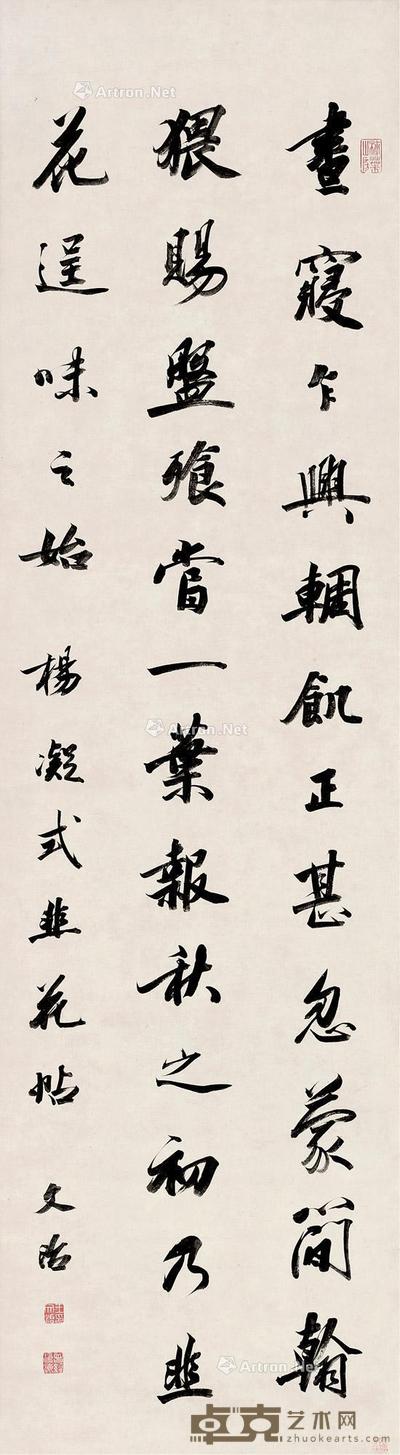 晝寢乍興輖飢正甚忽蒙簡翰
猥賜盤飧當一葉報秋之初乃韭
花逞味之始
楊凝式韭花帖
文治
Artron.Net
Artron.Net
Artron.Net
Artron.Net
卓克艺术网
zhuokearts.com